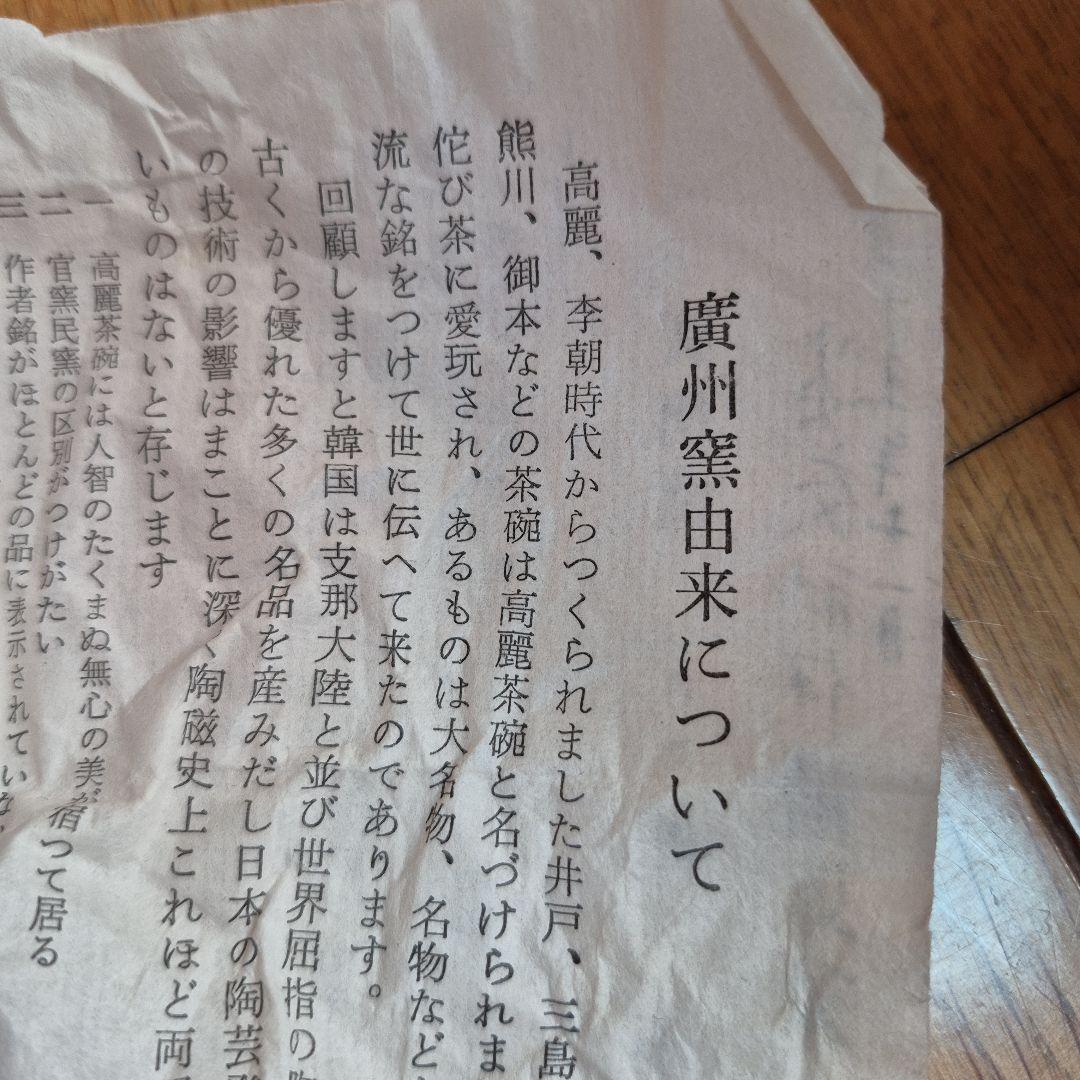 廣州窯由来について
高麗、李朝時代からつくられました井戸、三島
熊川、御本などの茶碗は高麗茶碗と名づけられま
侘び茶に愛玩され、あるものは大名物、名物など
流な銘をつけて世に伝へて来たのであります。
回顧しますと韓国は支那大陸と並び世界屈指の陶
古くから優れた多くの名品を産みだし日本の陶芸
の技術の影響はまことに深く陶磁史上これほど両
いものはないと存じます
一 高麗茶碗には人智のたくまぬ無心の美が宿つて居る
二 官窯民窯の区別がつけがたい
三 作者銘がほとんどの品に表示されていな